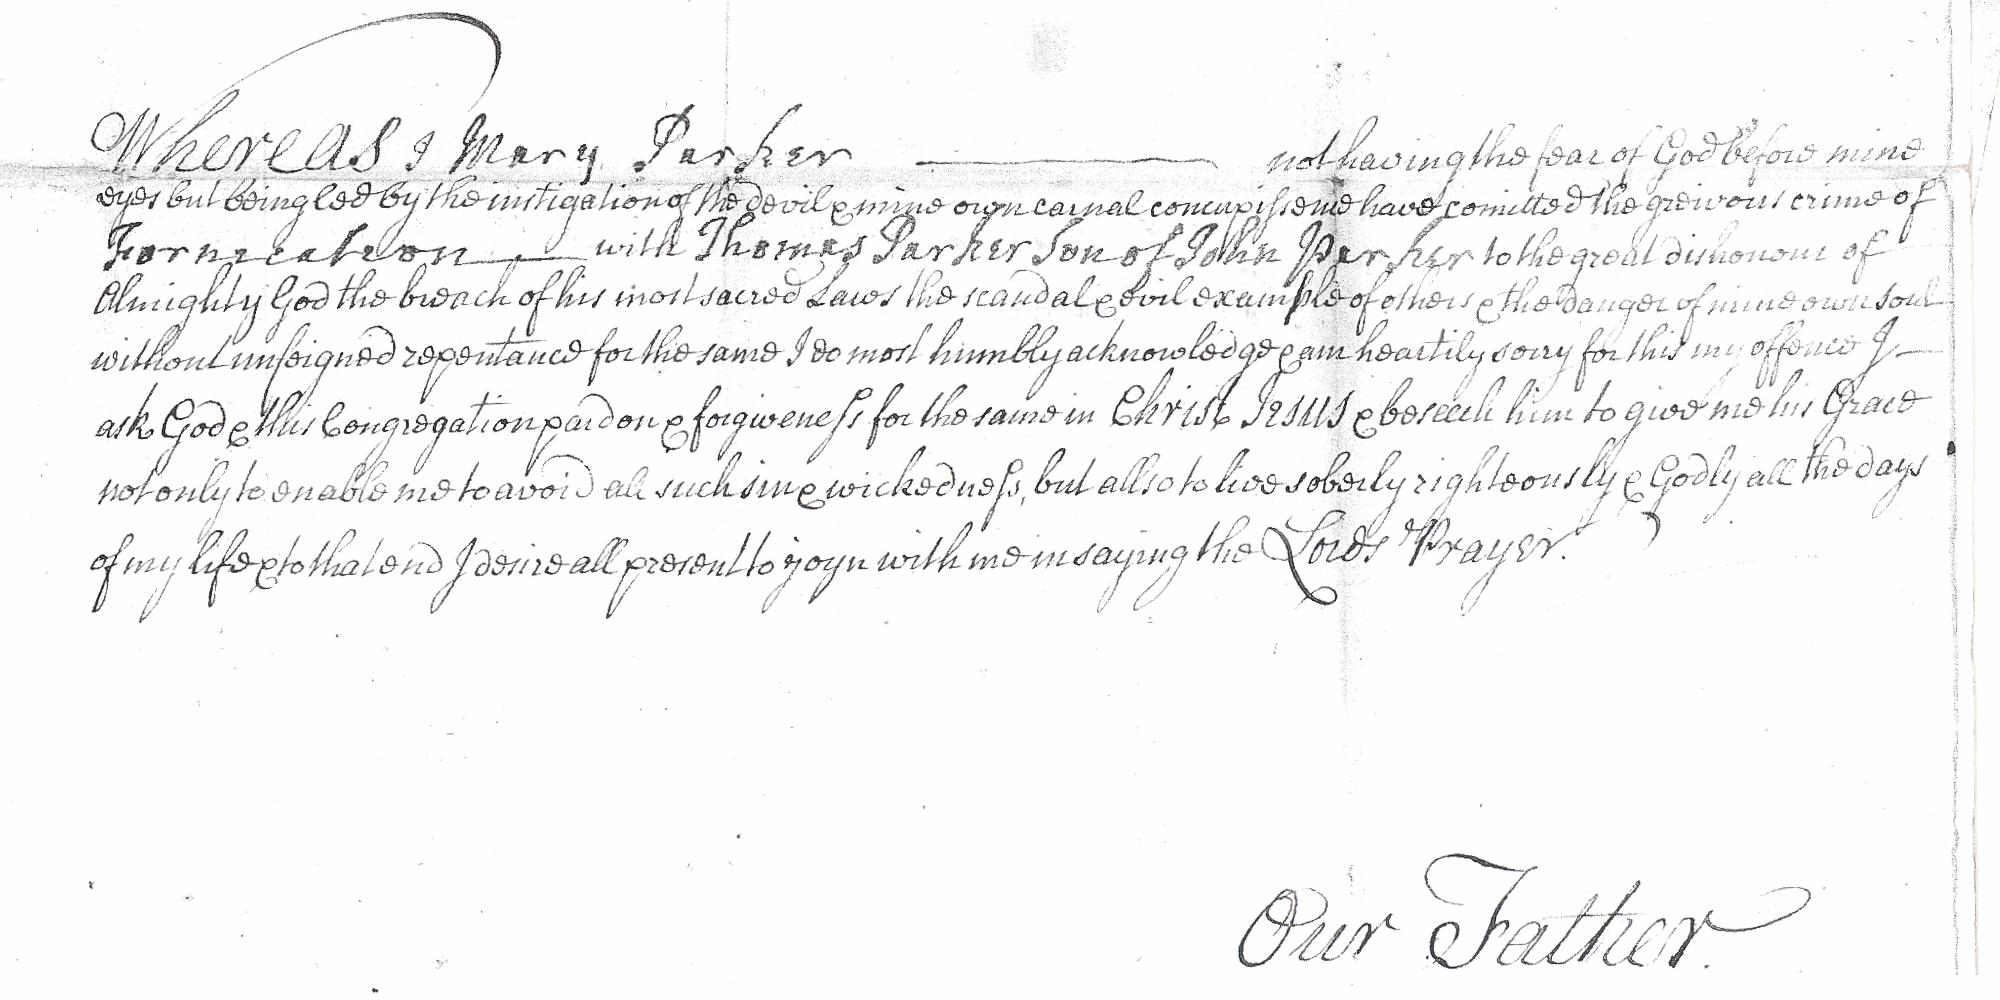 Whereas I Mary Parker ——— not having the fear of God before mine
eyes but being led by the instigation of the devil & mine own carnal concupissence have comitted the greivous crime of
Fornication — with Thomas Parker Son of John Parker to the great dishonour of
Almighty God the breach of his most sacred Laws the scandal & evil example of others & the danger of mine own soul
without unfeigned repentance for the same I do most humbly acknowledge & am heartily sorry for this my offence I —
ask God & this Congregation pardon & forgiveness for the same in Christ Jesus & beseech him to give me his Grace
not only to enable me to avoid all such sin & wickedness, but allso to live soberly righteously & Godly all the days
of my life & to that end I desire all present to joyn with me in saying the Lords Prayer.
Our Father.